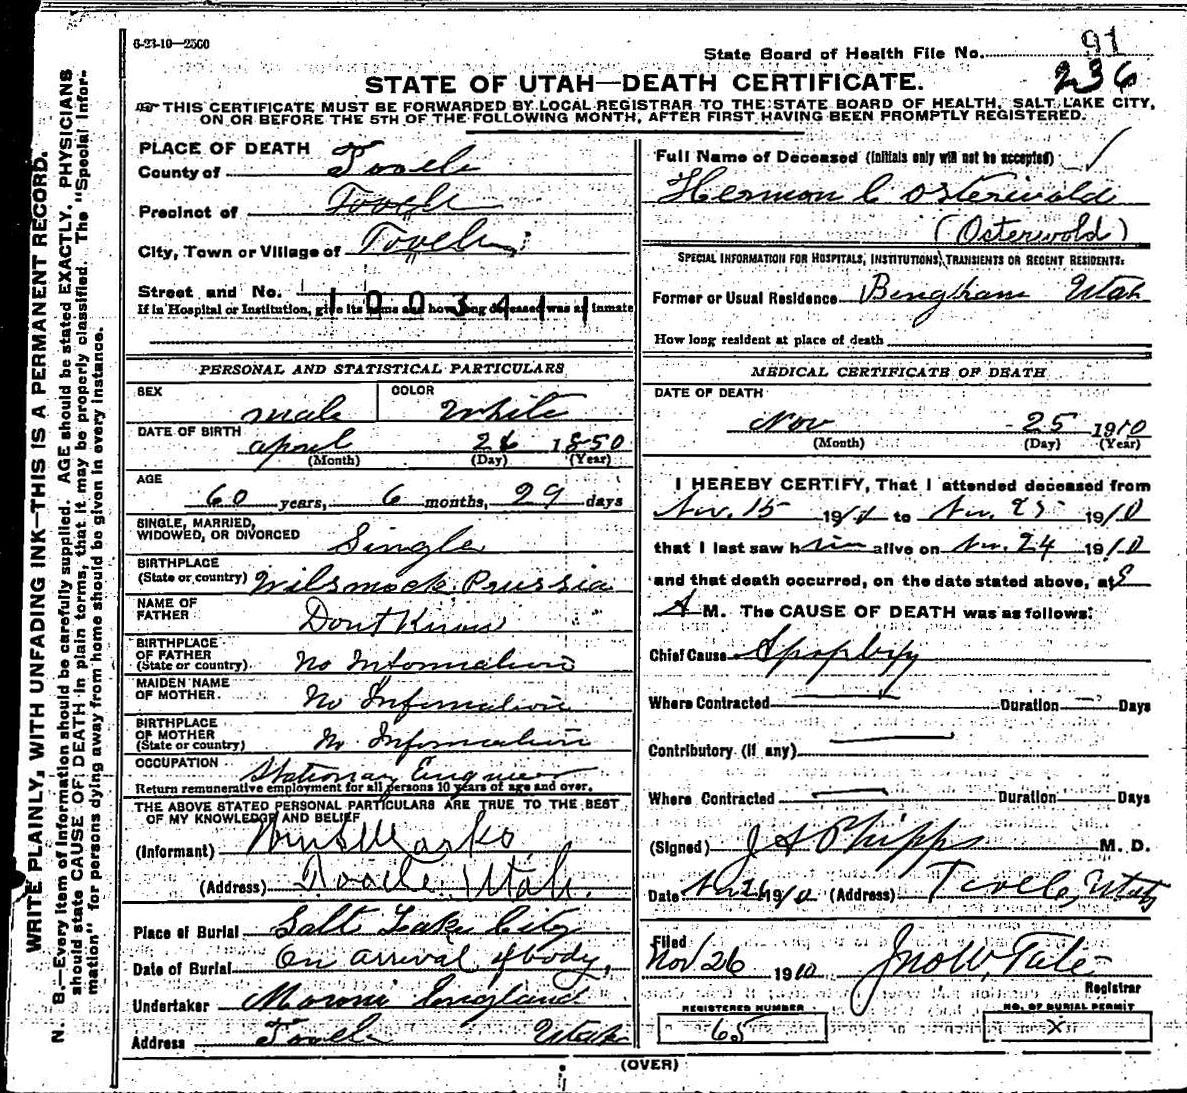 6-23-10—2500
State Board of Health File No. 91
236
STATE OF UTAH—DEATH CERTIFICATE.
THIS CERTIFICATE MUST BE FORWARDED BY LOCAL REGISTRAR TO THE STATE BOARD OF HEALTH, SALT LAKE CITY,
ON OR BEFORE THE 5TH OF THE FOLLOWING MONTH, AFTER FIRST HAVING BEEN PROMPTLY REGISTERED.
WRITE PLAINLY, WITH UNFADING INK—THIS IS A PERMANENT RECORD.
N. B.—Every item of information should be carefully supplied. AGE should be stated EXACTLY. PHYSICIANS
should state CAUSE OF DEATH in plain terms, that it may be properly classified. The "Special Infor-
mation" for persons dying away from home should be given in every instance.
PLACE OF DEATH
County of Tooele
Precinct of Tooele
City, Town or Village of Tooele
Street and No.
1003411
If in Hospital or Institution, give its name and how long deceased was an inmate
PERSONAL AND STATISTICAL PARTICULARS
SEX male COLOR White
DATE OF BIRTH April 26 1850
(Month) (Day) (Year)
AGE
60 years, 6 months, 29 days
SINGLE, MARRIED,
WIDOWED, OR DIVORCED Single
BIRTHPLACE
(State or country) Wilsmock Prussia
NAME OF
FATHER Dont Know
BIRTHPLACE
OF FATHER
(State or country) No Information
MAIDEN NAME
OF MOTHER No Information
BIRTHPLACE
OF MOTHER
(State or country) No Information
OCCUPATION Stationary Engineer
Return remunerative employment for all persons 10 years of age and over.
THE ABOVE STATED PERSONAL PARTICULARS ARE TRUE TO THE BEST
OF MY KNOWLEDGE AND BELIEF
(Informant) Wm S Marks
(Address) Tooele Utah.
Place of Burial Salt Lake City
Date of Burial On arrival of body,
Undertaker Moroni England
Address Tooele Utah
Full Name of Deceased (Initials only will not be accepted)
Hermon C Osterwold
(Osterwold)
SPECIAL INFORMATION FOR HOSPITALS, INSTITUTIONS, TRANSIENTS OR RECENT RESIDENTS:
Former or Usual Residence Bingham Utah
How long resident at place of death
MEDICAL CERTIFICATE OF DEATH
DATE OF DEATH
Nov 25 1910
(Month) (Day) (Year)
I HEREBY CERTIFY, That I attended deceased from
Nov. 15 1910 to Nov. 25 1910
that I last saw him alive on Nov. 24 1910
and that death occurred, on the date stated above, at 8
A M. The CAUSE OF DEATH was as follows:
Chief Cause
Where Contracted Duration Days
Contributory (if any)
Where Contracted Duration Days
(Signed) J A Phipps M. D.
Date Nov 26 1910 (Address) Tooele, Utah
Filed
Nov 26 1910 Jno W. Tate
Registrar
REGISTERED NUMBER NO. OF BURIAL PERMIT
65 X
(OVER)